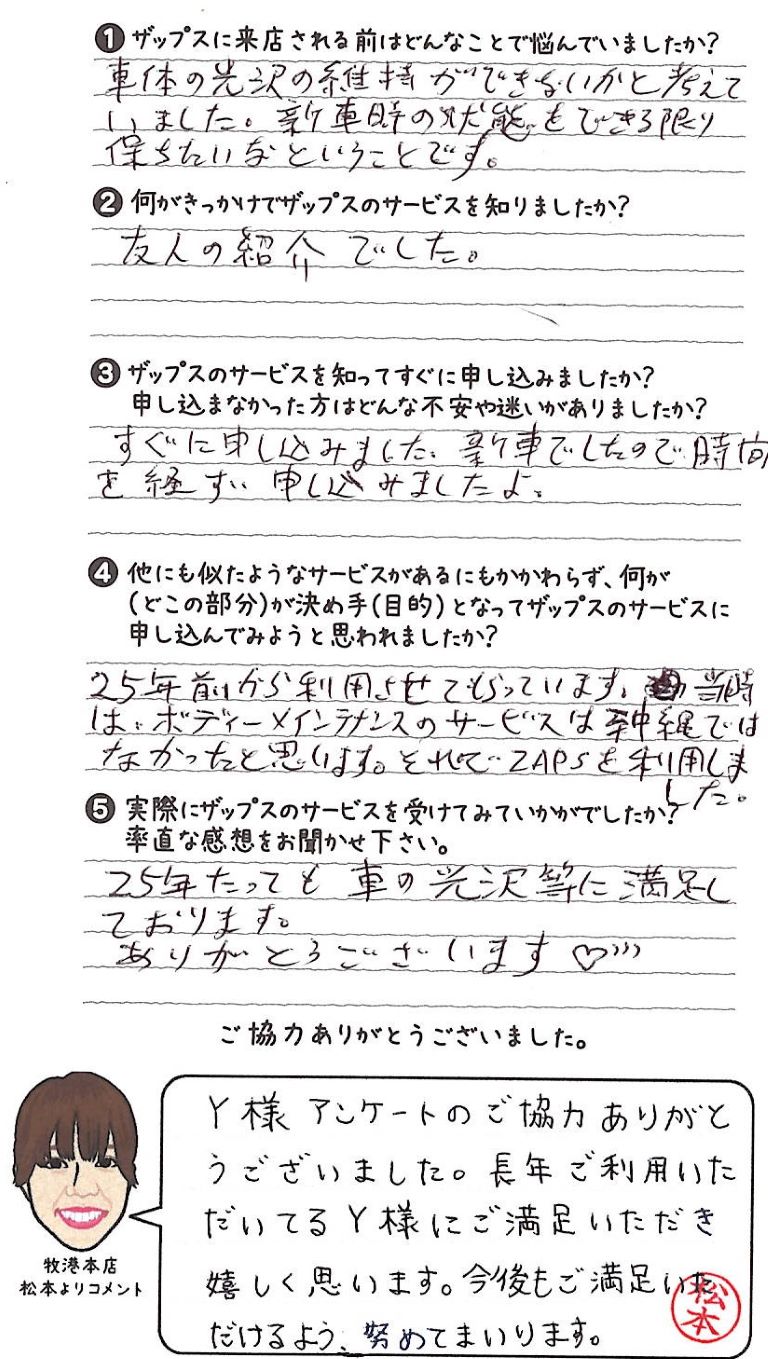 ❶ ザップスに来店される前はどんなことで悩んでいましたか?
車体の光沢の維持ができないかと考えて
いました。新車時の状態をできる限り
保ちたいなということです。
❷ 何がきっかけでザップスのサービスを知りましたか?
友人の紹介でした。
❸ ザップスのサービスを知ってすぐに申し込みましたか?
申し込まなかった方はどんな不安や迷いがありましたか?
すぐに申し込みました。新車でしたので時間
を経ずに申し込みましたよ。
❹ 他にも似たようなサービスがあるにもかかわらず、何が
(どこの部分)が決め手(目的)となってザップスのサービスに
申し込んでみようと思われましたか?
25年前から利用させてもらっています。当時
は、ボディーメインテナンスのサービスは沖縄では
なかったと思います。それで ZAPSを利用しま
した。
❺ 実際にザップスのサービスを受けてみていかがでしたか?
率直な感想をお聞かせ下さい。
25年たっても車の光沢等に満足し
ております。
ありがとうございます♡
ご協力ありがとうございました。
Y様 アンケートのご協力ありがと
うございました。長年ご利用いた
だいてるY様にご満足いただき
嬉しく思います。今後もご満足いた
だけるよう、努めてまいります。
松本
牧港本店
松本よりコメント